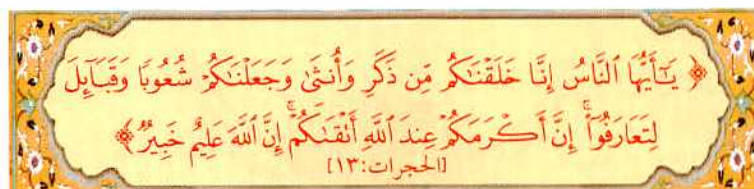 ﴿ يَـٰٓأَيُّهَا ٱلنَّاسُ إِنَّا خَلَقْنَـٰكُم مِّن ذَكَرٍ وَأُنثَىٰ وَجَعَلْنَـٰكُمْ شُعُوبًا وَقَبَآئِلَ
لِتَعَارَفُوٓا۟ ۚ إِنَّ أَكْرَمَكُمْ عِندَ ٱللَّهِ أَتْقَىٰكُمْ ۚ إِنَّ ٱللَّهَ عَلِيمٌ خَبِيرٌ ﴾
[الحجرات:١٣]